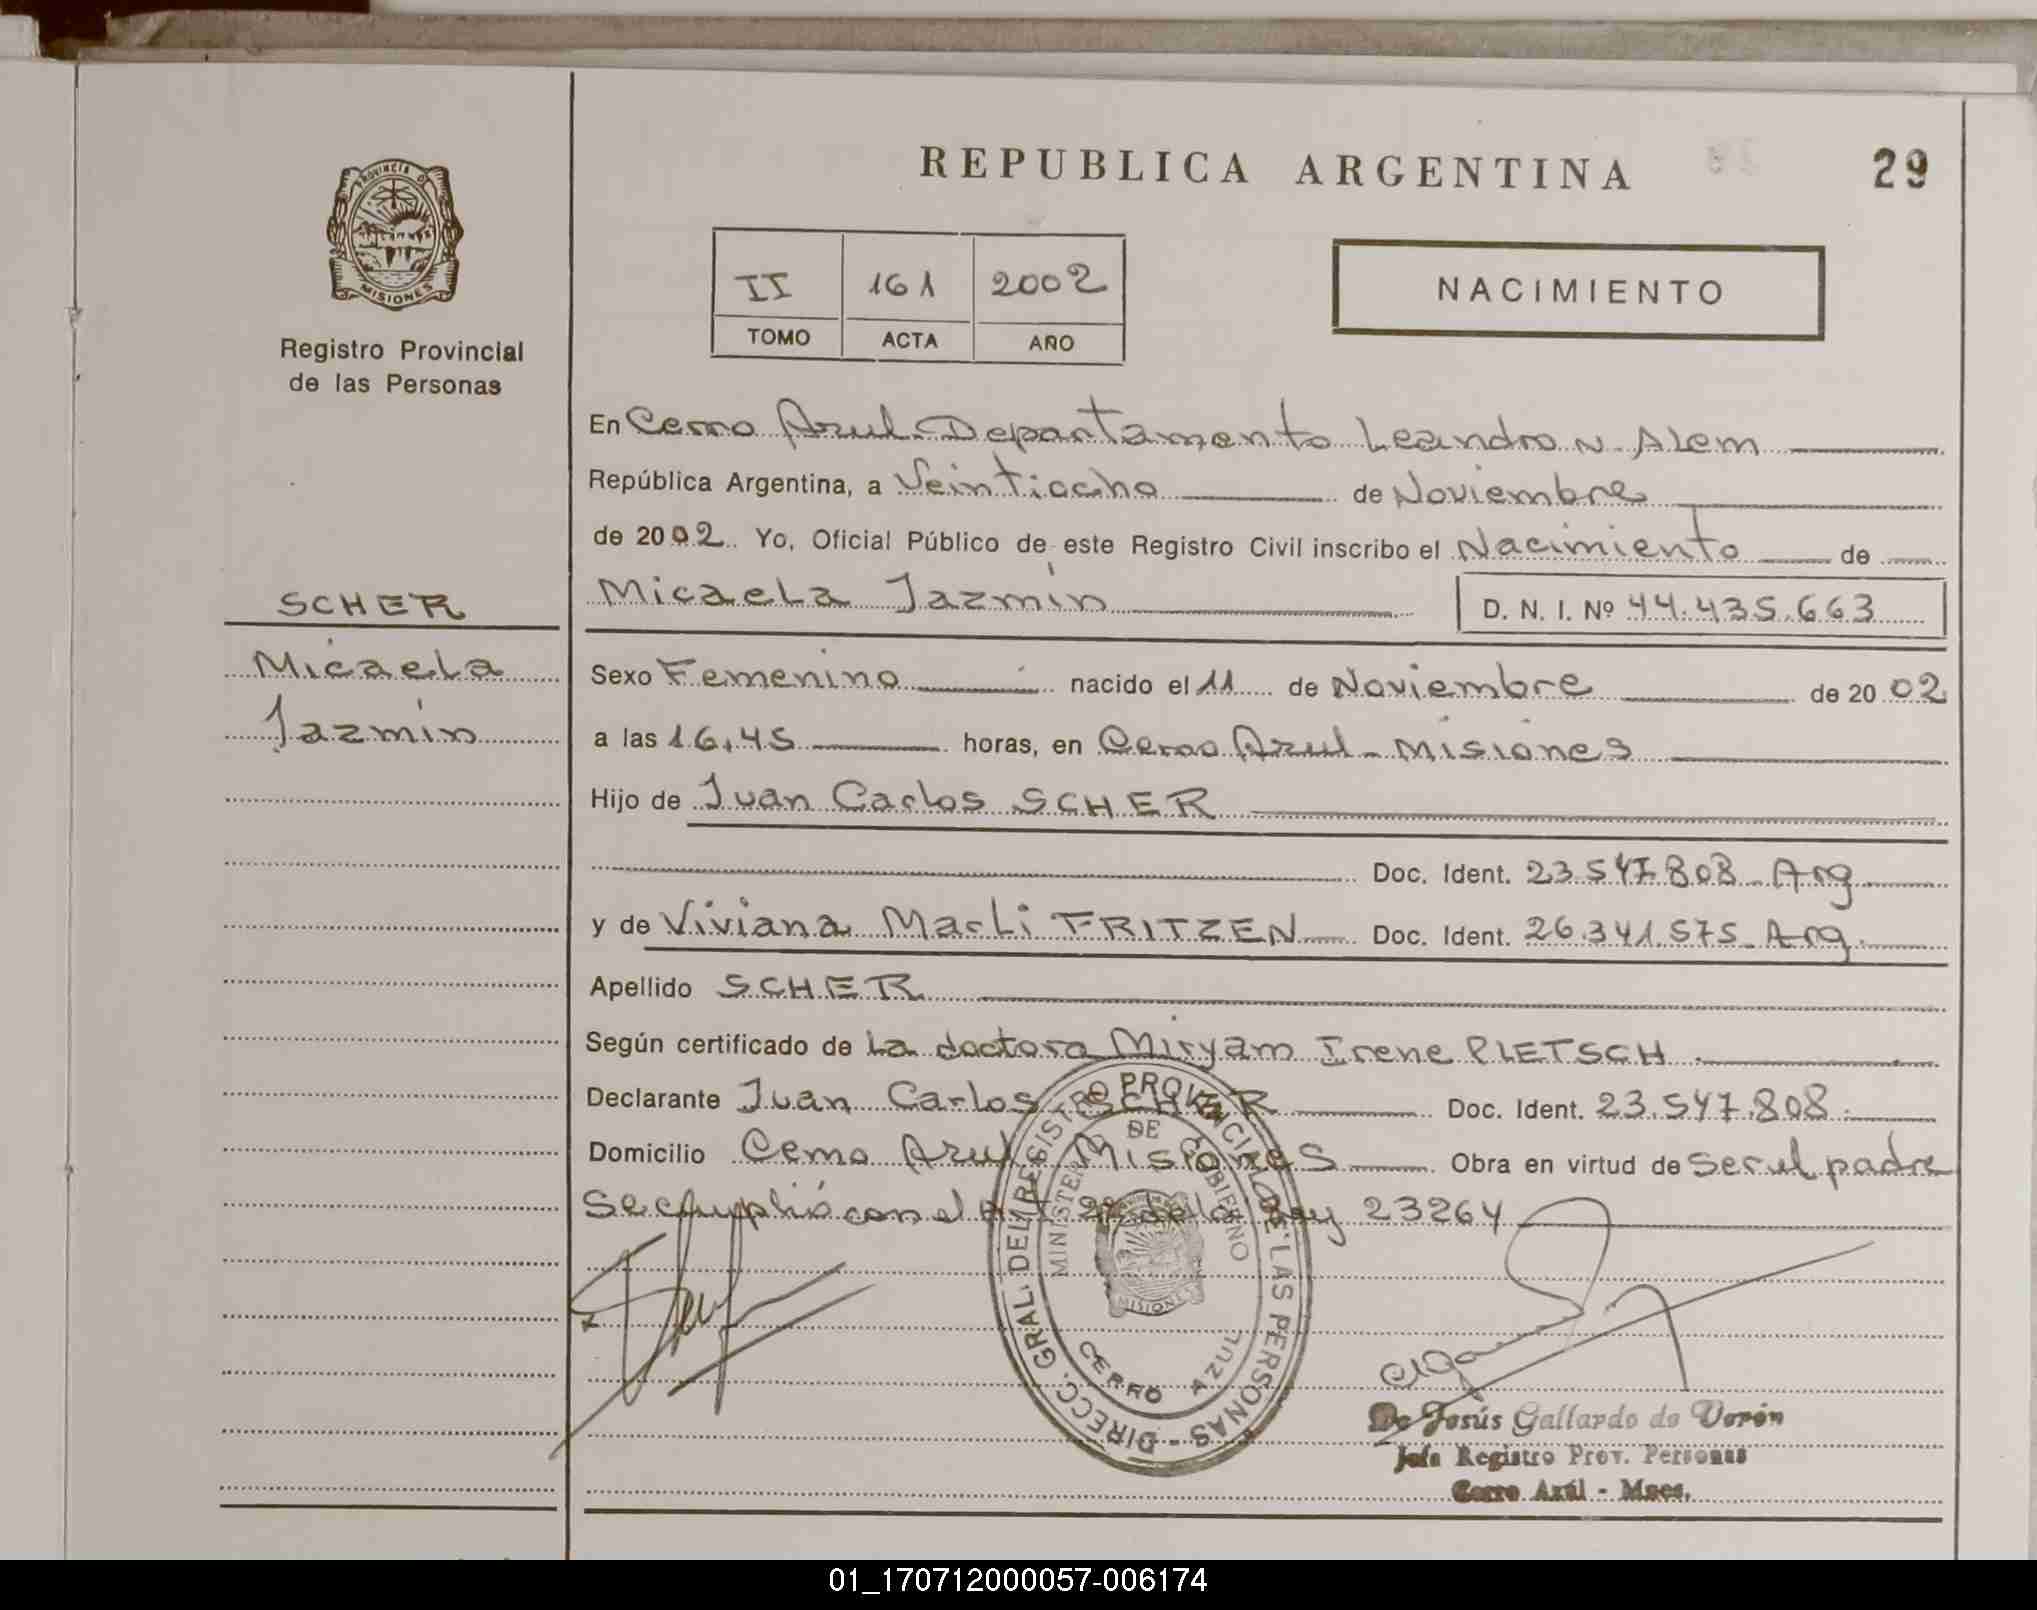 REPUBLICA ARGENTINA
29
PROVINCIA D
MISIONES
Registro Provincial
de las Personas
II 161 2002
TOMO ACTA AÑO
NACIMIENTO
En Cerro Azul Departamento Leandro N. Alem
República Argentina, a Veintiocho de Noviembre
de 2002 Yo, Oficial Público de este Registro Civil inscribo el Nacimiento de
Micaela Jazmín D. N. I. Nº 44.435.663
SCHER
Micaela
Jazmín
Sexo Femenino nacido el 11 de Noviembre de 2002
a las 16,45 horas, en Cerro Azul - Misiones
Hijo de Juan Carlos SCHER
Doc. Ident. 23.547.808 - Arg
y de Viviana Marli FRITZEN Doc. Ident. 26.341.575 - Arg.
Apellido SCHER
Según certificado de La doctora Miryam Irene PLETSCH
Declarante Juan Carlos SCHER Doc. Ident. 23.547.808
Domicilio Cerro Azul Misiones Obra en virtud de ser el padre
Se cumplió con el Art de la Ley 23264
DIRECC. GRAL. DEL REGISTRO PROVINCIAL DE LAS PERSONAS -
MINISTERIO DE GOBIERNO
MISIONES
CERRO AZUL
De Jesús Gallardo de Verón
Jefa Registro Prov. Personas
Cerro Azúl - Mnes.
01_170712000057-006174